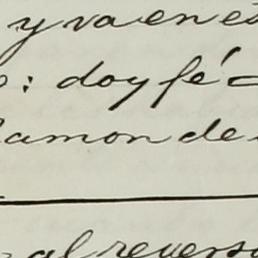 y va en es
: doy fé
Ramon de
al reverso